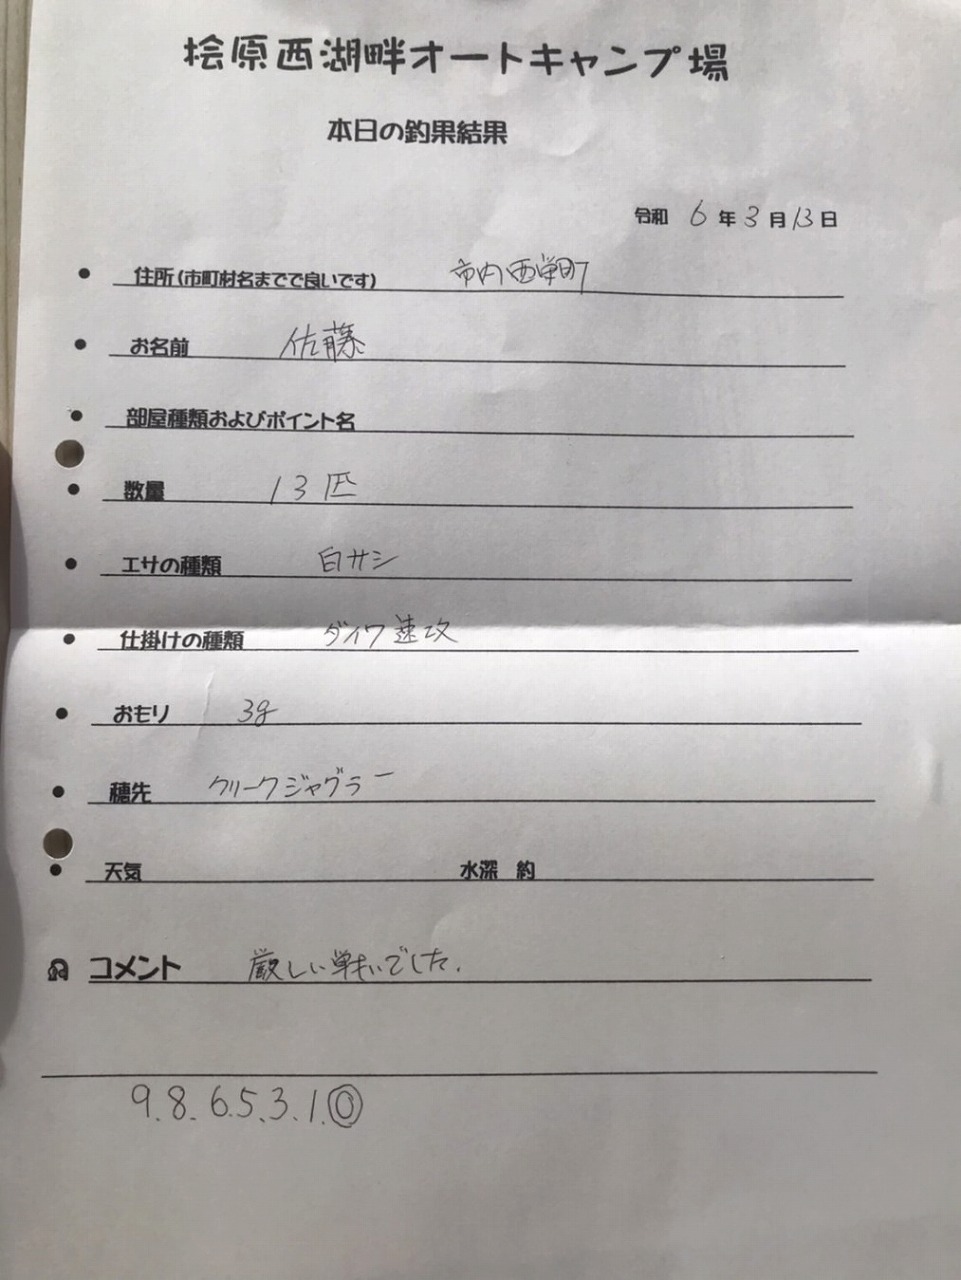 桧原西湖畔オートキャンプ場
本日の釣果結果
令和 6 年 3 月 13 日
住所(市町村名までで良いです) 市内西栄町
お名前 佐藤
部屋種類およびポイント名
数量 13匹
エサの種類 白サシ
仕掛けの種類 ダイワ速攻
おもり 3g
穂先 クリークジャグラー
天気 水深 約
コメント 厳しい戦いでした.
9.8.6.5.3.1.⓪